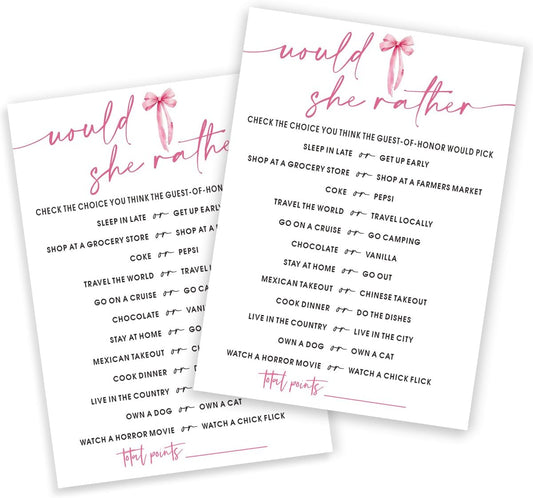 would
she rather
CHECK THE CHOICE YOU THINK THE GUEST-OF-HONOR WOULD PICK
SLEEP IN LATE or GET UP EARLY
SHOP AT A GROCERY STORE or SHOP AT A FARMERS MARKET
COKE or PEPSI
TRAVEL THE WORLD or TRAVEL LOCALLY
GO ON A CRUISE or GO CAMPING
CHOCOLATE or VANILLA
STAY AT HOME or GO OUT
MEXICAN TAKEOUT or CHINESE TAKEOUT
COOK DINNER or DO THE DISHES
LIVE IN THE COUNTRY or LIVE IN THE CITY
OWN A DOG or OWN A CAT
WATCH A HORROR MOVIE or WATCH A CHICK FLICK
total points
would
she rather
CHECK THE CHOICE YOU THINK THE GUEST-OF-HONO
SLEEP IN LATE or GET UP EARLY
SHOP AT A GROCERY STORE or SHOP AT A F
COKE or PEPSI
TRAVEL THE WORLD or TRAVEL
GO ON A CRUISE or GO CA
CHOCOLATE or VANIL
STAY AT HOME or GO
MEXICAN TAKEOUT or CH
COOK DINNER or D
LIVE IN THE COUNTRY or L
OWN A DOG or OWN A CAT
WATCH A HORROR MOVIE or WATCH A CHICK FLICK
total points